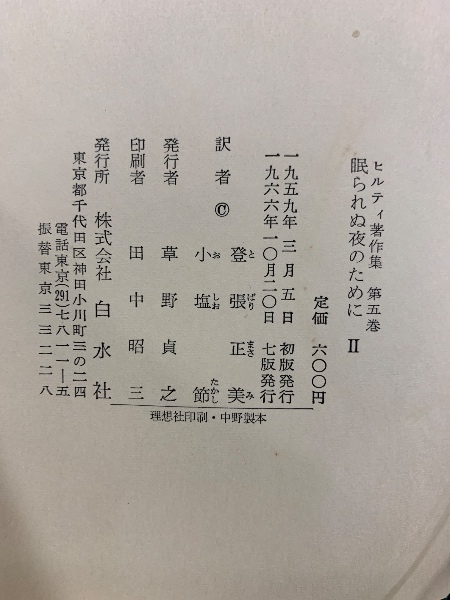 ヒルティ著作集 第五巻
眠られぬ夜のために Ⅱ
定価 六〇〇円
一九五九年 三 月 五 日 初版発行
一九六六年一〇月二〇日 七版発行
訳者 © 登張正美
とばりまさみ
小塩節
おしおたかし
発行者 草野貞之
印刷者 田中昭三
発行所 株式会社 白水社
東京都千代田区神田小川町三の二四
電話東京(291)七八一一―五
振替東京三三二二八
理想社印刷・中野製本